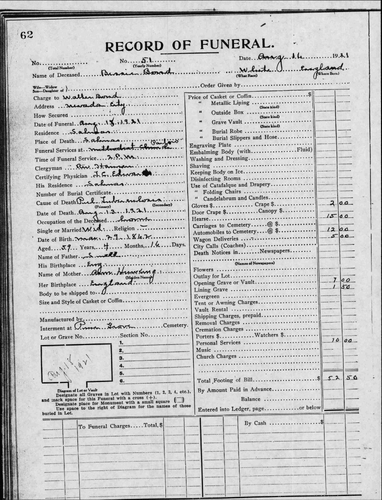 62
RECORD OF FUNERAL.
No. No. 51 Date Aug 16 1921
(Total Number) (Yearly Number)
Name of Deceased Bessie Bond White England
(What Race) (Where Born)
Order Given by
Charge to Walter Bond
Address Nevada City
How Secured
Date of Funeral Aug. 18, 1921
Residence Salinas
Place of Death Salinas
Funeral Services at
Time of Funeral Service 2 P.M.
Clergyman Rev.
Certifying Physician
His Residence Salinas
Number of Burial Certificate
Cause of Death Pul. Tuberculosis
Date of Death Aug. 1921
Occupation of the Deceased
Single or Married Wid. Religion
Date of Birth Mar 29 1862
Aged 59 Years Months 16 Days
Name of Father
His Birthplace Eng
Name of Mother
Her Birthplace England
Body to be shipped to
Size and Style of Casket or Coffin
Manufactured by
Interment at Pine Grove Cemetery.
Lot or Grave No. Section No.
1.
2.
3.
4.
5.
6.
Diagram of Lot or Vault
Designate all Graves in Lot with Numbers (1, 2, 3, 4, etc.), and mark space for this Funeral with a cross (+).
Designate place for Monument with a small square
Use space to right of Diagram for the names of those buried in Lot.
Price of Casket or Coffin
" Metallic Lining
" Outside Box
" Grave Vault
" Burial Robe
" Burial Slippers and Hose
Engraving Plate
Embalming Body (with Fluid)
Washing and Dressing
Shaving
Keeping Body on Ice
Disinfecting Rooms
Use of Catafalque and Drapery
" Folding Chairs
" Candelabrum and Candles
Gloves $ Crape $ 2 00
Door Crape $
Hearse 15 00
Carriages to Cemetery @ $
Automobiles to Cemetery @ $ 12 00
Wagon Deliveries 5 00
City Calls (Coaches)
Death Notices in Newspapers
Flowers
Outlay for Lot
Opening Grave or Vault 7 00
Lining Grave 1 50
Evergreen
Tent or Awning Charges
Vault Rental
Shipping Charges, prepaid
Removal Charges
Cremation Charges
Porters $ Watchers $
Personal Services 10 00
Music
Church Charges
Total Footing of Bill $ 52 50
By Amount Paid in Advance
Balance
Entered into Ledger, page or below
To Funeral Charges Total, $ By Cash $